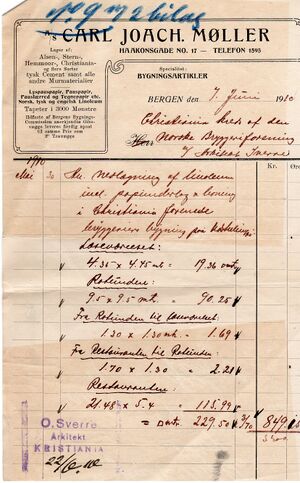 og 2 bilag
A/S CARL JOACH. MØLLER
HAAKONSGADE NO. 17 — TELEFON 1593
Lager af:
Alsen-, Stern-,
Hemmoor-, Christiania-
og flere Sorter
tysk Cement samt alle
andre Murmaterialier
Lyspauspapir, Pauspapir,
Pauslærred og Tegnepapir etc.
Norsk, tysk og engelsk Linoleum
Tapeter i 3000 Mønstre
Specialitet:
BYGNINGSARTIKLER
BERGEN 7 Juni 1910
Christiania kreds af den
Herr Norske Bryggeriforening
v/ Arkitekt Sverre
1910
Kr.
Mai 30 Hr. Nedlægning af linoleum
incl. papunderlag &
i Christiania forenede
bryggeriers bygning paa Udstillingen:
4.35 x 4.45 mt. = 19.36
Rotunden:
9.5 x 9.5 mt. = 90.25
Fra Rotunden til
1.30 x 1.30 mt. = 1.69
Fra Restauranten til Rotunden:
1.70 x 1.30 = 2.21
Restauranten
21.48 x 5.4 = 115.99
= 229.50 3/70 849.15
O. Sverre
Arkitekt
KRISTIANIA
22/6.